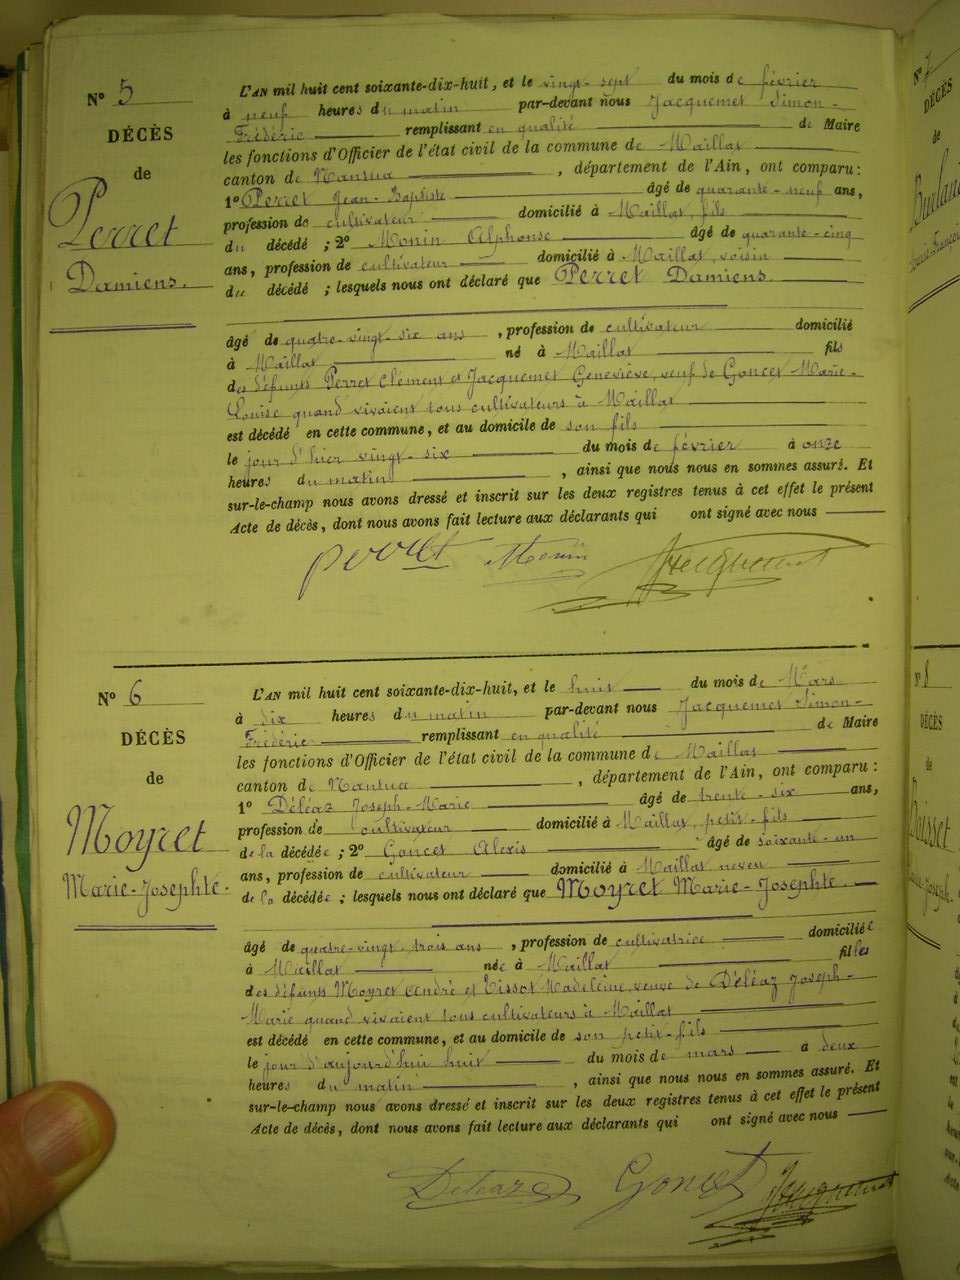 N° 5
DÉCÈS
de
Perret
Damiens.
L'AN mil huit cent soixante-dix-huit, et le vingt-sept du mois de février
à neuf heures du matin par-devant nous Jacquemet Simon-
Frédéric remplissant en qualité de Maire
les fonctions d'Officier de l'état civil de la commune de Maillat
canton de Nantua, département de l'Ain, ont comparu :
1° Perret Jean-Baptiste âgé de quarante-neuf ans,
profession de cultivateur domicilié à Maillat, fils
du décédé ; 2° Monin Alphonse âgé de quarante-cinq
ans, profession de cultivateur domicilié à Maillat, voisin
du décédé ; lesquels nous ont déclaré que Perret Damiens.
âgé de quatre-vingt-six ans, profession de cultivateur domicilié
à Maillat né à Maillat fils
des défunts Perret Clément et Jacquemet Geneviève, veuf de Goncet Marie-
Louise quand vivaient tous cultivateurs à Maillat
est décédé en cette commune, et au domicile de son fils
le jour d'hier vingt-six du mois de février à onze
heures du matin, ainsi que nous nous en sommes assuré. Et
sur-le-champ nous avons dressé et inscrit sur les deux registres tenus à cet effet le présent
Acte de décès, dont nous avons fait lecture aux déclarants qui ont signé avec nous
Perret Monin Jacquemet
N° 6
DÉCÈS
de
Moyret
Marie-Josephte.
L'AN mil huit cent soixante-dix-huit, et le huit du mois de Mars
à dix heures du matin par-devant nous Jacquemet Simon-
Frédéric remplissant en qualité de Maire
les fonctions d'Officier de l'état civil de la commune de Maillat
canton de Nantua, département de l'Ain, ont comparu :
1° Déléaz Joseph-Marie âgé de trente-six ans,
profession de cultivateur domicilié à Maillat, petit-fils
de la décédée ; 2° Goncet Alexis âgé de soixante-un
ans, profession de cultivateur domicilié à Maillat neveu
de la décédée ; lesquels nous ont déclaré que Moyret Marie-Josephte.
âgé de quatre-vingt-trois ans, profession de cultivatrice domiciliée
à Maillat née à Maillat filles
des défunts Moyret et Tissot Madeleine, veuve de Déléaz Joseph-
Marie quand vivaient tous cultivateurs à Maillat
est décédé en cette commune, et au domicile de son petit-fils
le jour d'aujourd'hui huit du mois de mars à deux
heures du matin, ainsi que nous nous en sommes assuré. Et
sur-le-champ nous avons dressé et inscrit sur les deux registres tenus à cet effet le présent
Acte de décès, dont nous avons fait lecture aux déclarants qui ont signé avec nous
Déléaz Goncet Jacquemet
N° 7
DÉCÈS
de
N° 8
DÉCÈS
de